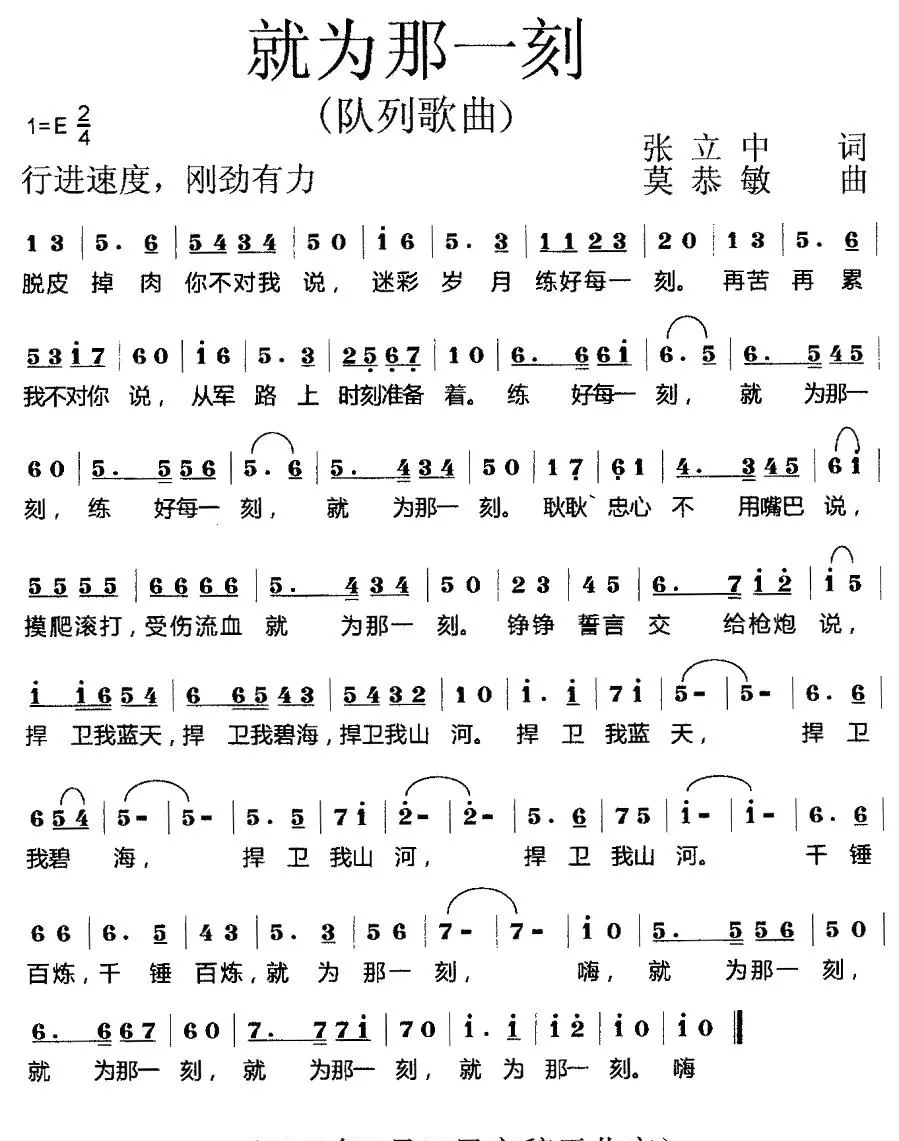 就为那一刻
(队列歌曲)
1=E 2/4
张立中 词
行进速度，刚劲有力
莫恭敏 曲
1 3 | 5. 6 | 5 4 3 4 | 5 0 | i 6 | 5. 3 | 1 1 2 3 | 2 0 | 1 3 | 5. 6 |
脱皮 掉 肉 你不对我 说， 迷彩 岁 月 练好每一 刻。 再苦 再 累
5 3 i 7 | 6 0 | i 6 | 5. 3 | 2 5 6 7 | 1 0 | 6. 6 6 i | 6. 5 | 6. 5 4 5 |
我不对你 说， 从军 路 上 时刻准备 着。 练 好每一 刻， 就 为那一
6 0 | 5. 5 5 6 | 5. 6 | 5. 4 3 4 | 5 0 | 1 7 | 6 1 | 4. 3 4 5 | 6 i |
刻， 练 好每一 刻， 就 为那一 刻。 耿耿 忠心 不 用嘴巴 说，
5 5 5 5 | 6 6 6 6 | 5. 4 3 4 | 5 0 | 2 3 | 4 5 | 6. 7 i 2 | i 5 |
摸爬滚打，受伤流血 就 为那一 刻。 铮铮 誓言 交 给枪炮 说，
i i 6 5 4 | 6 6 5 4 3 | 5 4 3 2 | 1 0 | i. i | 7 i | 5 - | 5 - | 6. 6 |
捍 卫我蓝天，捍 卫我碧海，捍卫我山 河。 捍 卫 我蓝 天， 捍 卫
6 5 4 | 5 - | 5 - | 5. 5 | 7 i | 2 - | 2 - | 5. 6 | 7 5 | i - | i - | 6. 6 |
我碧 海， 捍 卫 我山 河， 捍 卫 我山 河。 千 锤
6 6 | 6. 5 | 4 3 | 5. 3 | 5 6 | 7 - | 7 - | i 0 | 5. 5 5 6 | 5 0 |
百炼，千 锤 百炼，就 为 那一 刻， 嗨， 就 为那一 刻，
6. 6 6 7 | 6 0 | 7. 7 7 i | 7 0 | i. i | i 2 | i 0 | i 0 ‖
就 为那一 刻， 就 为那一 刻， 就 为 那一 刻。 嗨